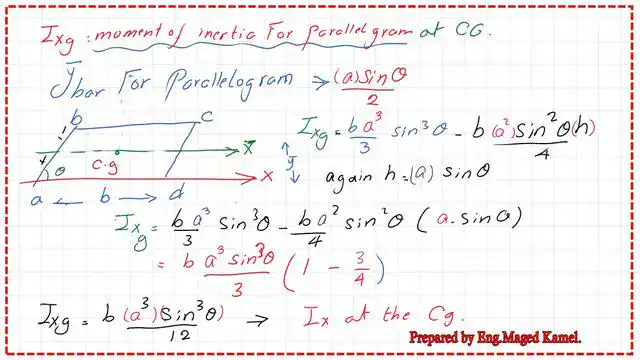 Ixg : moment of inertia For parallelogram at CG.
ȳbar For Parallelogram → (a) sinθ / 2
b c
Ixg = b a³ / 3 sin³θ - b (a²) sin²θ (h) / 4
θ c.g x̄ y
x
again h = (a) sinθ
a ← b → d
Ixg = b a³ / 3 sin³θ - b a² / 4 sin²θ (a.sinθ)
= b a³ sin³θ / 3 (1 - 3/4)
Ixg = b (a³)(sin³θ) / 12 → Ix at the Cg.
Prepared by Eng.Maged Kamel.